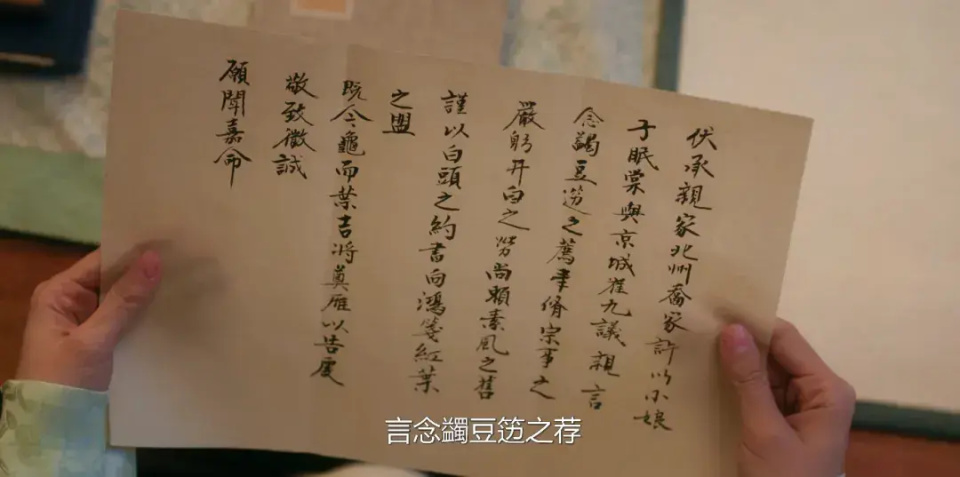 伏承親家北州喬家許以小娘
子眠棠與京城崔九議親言
念蠲豆籩之薦聿脩宗事之
嚴躬井臼之勞尚賴素風之舊
謹以白頭之約書向鴻箋紅葉
之盟
既令龜而葉吉將奠雁以告虔
敬致微誠
願聞嘉命
言念蠲豆笾之荐